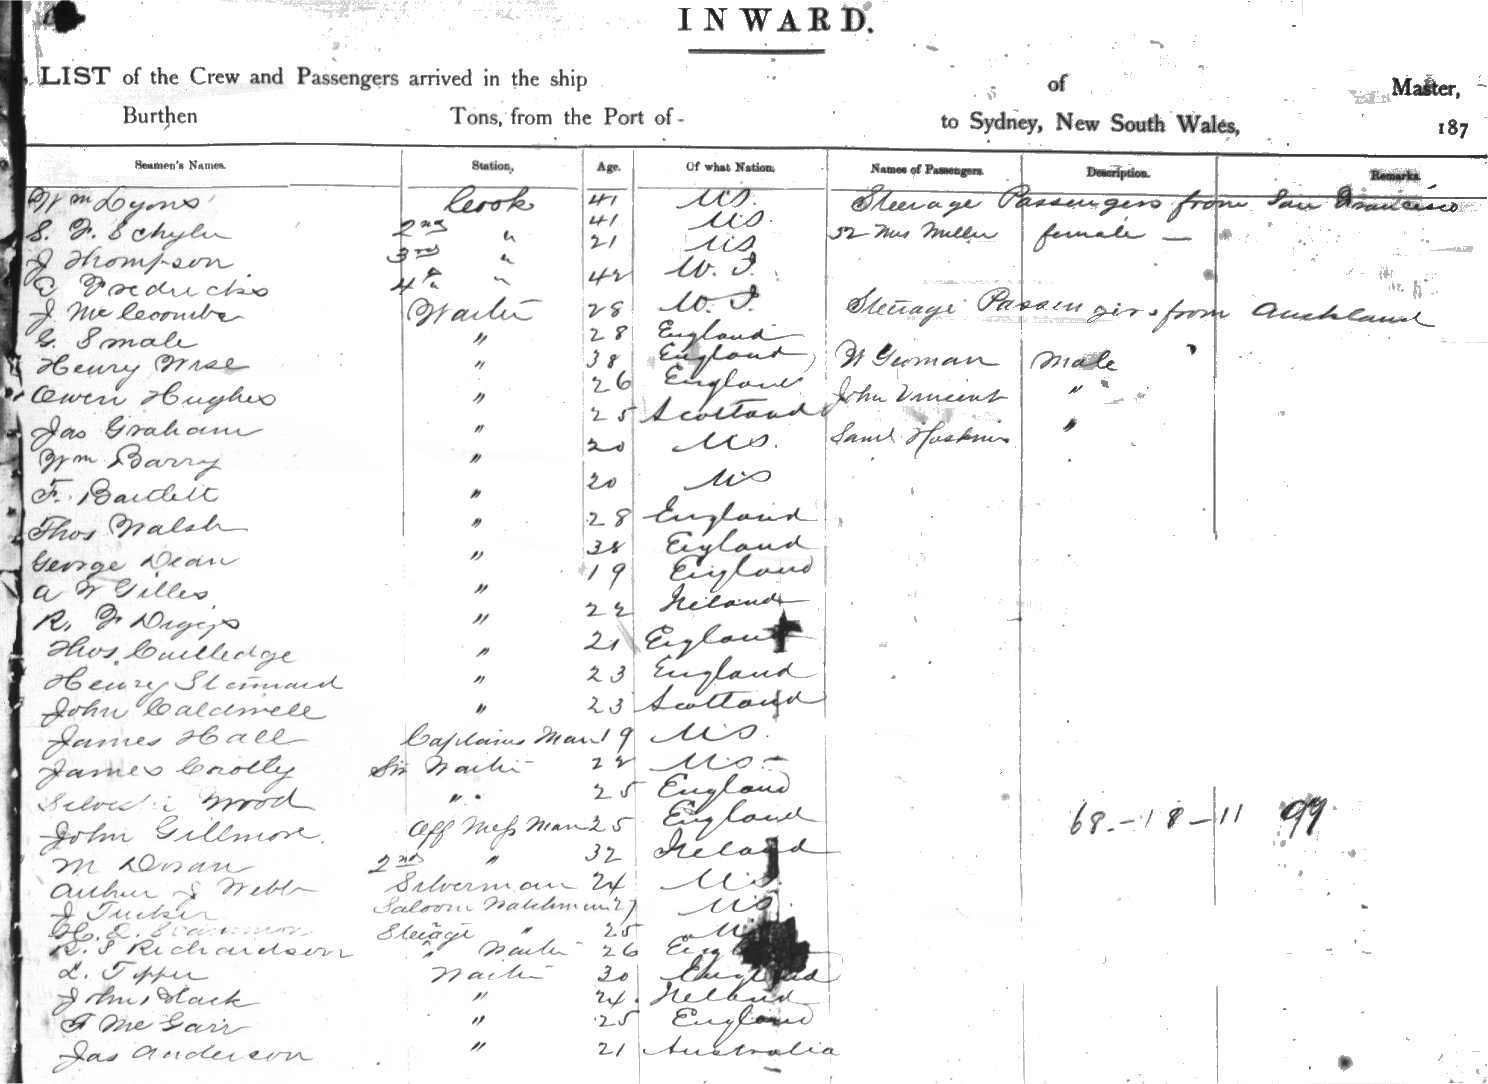 INWARD.
LIST of the Crew and Passengers arrived in the ship of Master,
Burthen Tons, from the Port of - to Sydney, New South Wales, 187
Seamen's Names. Station, Age. Of what Nation. Names of Passengers. Description. Remarks.
Wm Lyons Cook 41 US. Steerage Passengers from San Francisco
S. F. Schyler 2nd " 41 US 52 Mrs Miller female —
J Thompson 3rd " 21 US
Fredericks 4th " 42 W. I.
J McCoombe Waiter 28 W. I. Steerage Passengers from Auckland
G. Smale " 28 England
Henry Wise " 38 England W Yeoman Male "
Owen Hughes " 26 England John Vincent "
Jas Graham " 25 Scotland Saml Hoskins "
Wm Barry " 20 US.
F. Bartlett " 20 US
Thos Walsh " 28 England
George Dean " 38 England
A W Gilles " 19 England
R. F Diggs " 22 Ireland
Thos. " 21 England
Henry Stannard " 23 England
John Caldwell " 23 Scotland
James Hall Captains Man 19 US.
James Crotty Waiter 22 US -
Wood " 25 England
John Gillmore. Off Mess Man 25 England 68.-18-11 99
M Doran 2nd " 32 Ireland
Arthur J Webb Silverman 24 US.
J Tucker Saloon Watchman 27 US.
H. L. Steerage " 25
R. S Richardson " Waiter 26
L. Tipper Waiter 30 England
John Slack " 24. Ireland
F McGarr " 25 England
Jas Anderson " 21 Australia